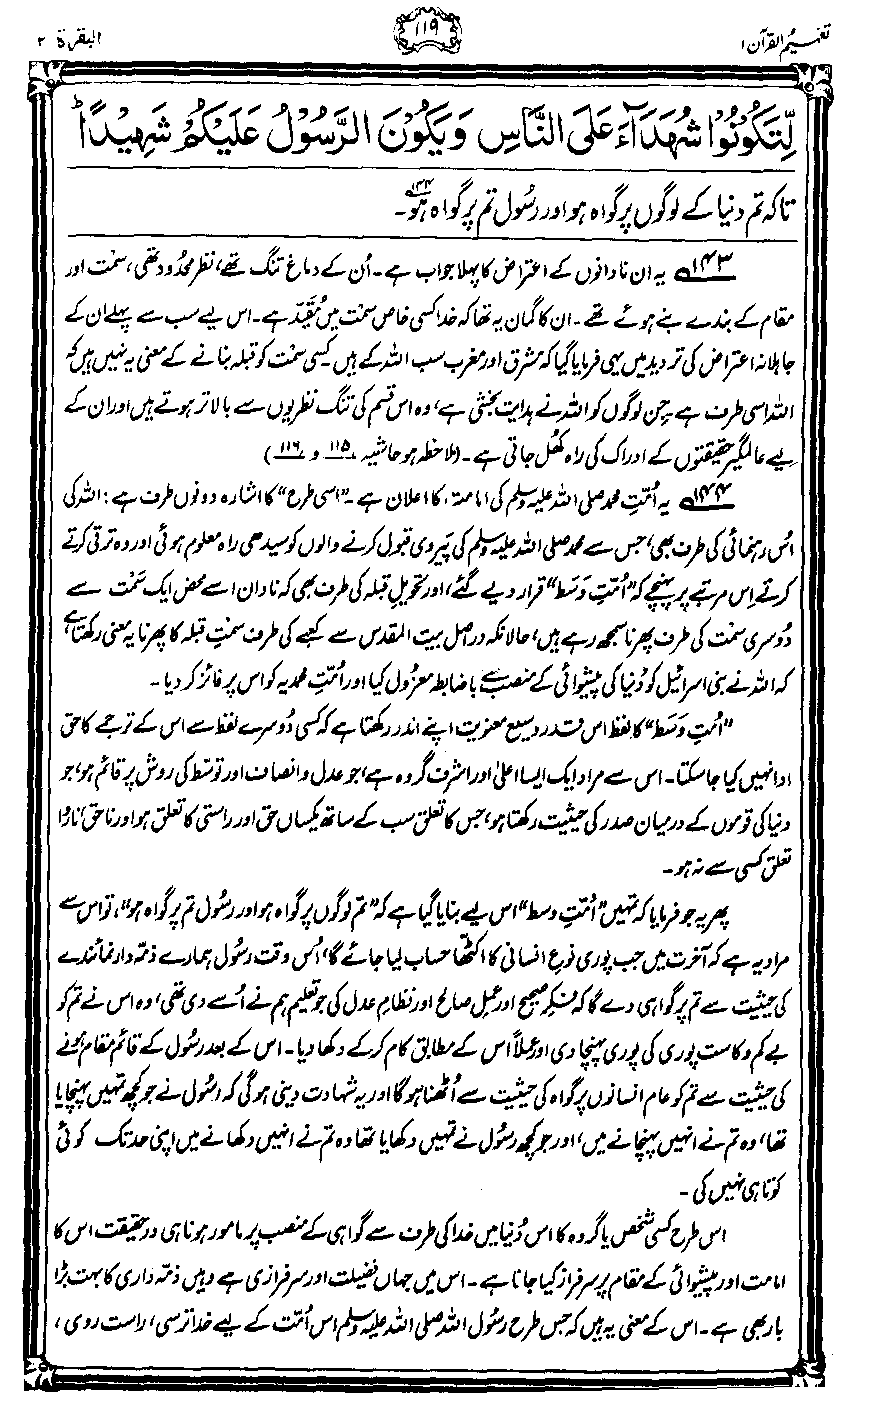 تفہیم القرآن ۱
۱۱۹
البقرۃ ۲
لِّتَكُوْنُوْا شُهَدَآءَ عَلَى النَّاسِ وَيَكُوْنَ الرَّسُوْلُ عَلَيْكُمْ شَهِيْدًا ؕ
تاکہ تم دنیا کے لوگوں پر گواہ ہو اور رسُول تم پر گواہ ہو۱۴۴۔
۱۴۳ یہ ان نادانوں کے اعتراض کا پہلا جواب ہے۔ اُن کے دماغ تنگ تھے، نظر محدُود تھی، سمت اور
مقام کے بندے بنے ہوئے تھے۔ ان کا گمان یہ تھا کہ خدا کسی خاص سمْت میں مُقَیَّد ہے۔ اس لیے سب سے پہلے ان کے
جاہلانہ اعتراض کی تردید میں یہی فرمایا گیا کہ مشرق اور مغرب سب اللہ کے ہیں۔ کسی سمْت کو قبلہ بنانے کے معنی یہ نہیں ہیں کہ
اللہ اسی طرف ہے۔ جن لوگوں کو اللہ نے ہدایت بخشی ہے، وہ اس قسم کی تنگ نظریوں سے بالاتر ہوتے ہیں اور ان کے
لیے عالمگیر حقیقتوں کے ادراک کی راہ کھُل جاتی ہے۔ (ملاحظہ ہو حاشیہ ۱۱۵ و ۱۱۶)
۱۴۴ یہ اُمّتِ محمد صلی اللہ علیہ وسلم کی امامت کا اعلان ہے۔ ”اسی طرح“ کا اشارہ دونوں طرف ہے: اللہ کی
اُس رہنمائی کی طرف بھی، جس سے محمد صلی اللہ علیہ وسلم کی پیروی قبول کرنے والوں کو سیدھی راہ معلوم ہوئی اور وہ ترقی کرتے
کرتے اِس مرتبے پر پہنچے کہ ”اُمّتِ وَسَط“ قرار دیے گئے، اور تحویلِ قبلہ کی طرف بھی کہ نادان اسے محض ایک سَمْت سے
دُوسری سمت کی طرف پھرنا سمجھ رہے ہیں، حالانکہ دراصل بیت المقدس سے کعبے کی طرف سمتِ قبلہ کا پھرنا یہ معنی رکھتا ہے
کہ اللہ نے بنی اسرائیل کو دُنیا کی پیشوائی کے منصب سے باضابطہ معزُول کیا اور اُمّتِ محمدیہ کو اس پر فائز کر دیا۔
”اُمتِ وَسَط“ کا لفظ اس قدر وسیع معنویت اپنے اندر رکھتا ہے کہ کسی دُوسرے لفظ سے اس کے ترجمے کا حق
ادا نہیں کیا جا سکتا۔ اس سے مراد ایک ایسا اعلیٰ اور اشرف گروہ ہے، جو عدل و انصاف اور توسّط کی روش پر قائم ہو، جو
دنیا کی قوموں کے درمیان صدر کی حیثیت رکھتا ہو، جس کا تعلق سب کے ساتھ یکساں حق اور راستی کا تعلق ہو اور ناحق، ناروا
تعلق کسی سے نہ ہو۔
پھر یہ جو فرمایا کہ تمہیں ”اُمّتِ وسط“ اس لیے بنایا گیا ہے کہ ”تم لوگوں پر گواہ ہو اور رسُول تم پر گواہ ہو“، تو اس سے
مراد یہ ہے کہ آخرت میں جب پوری نوعِ انسانی کا اکٹھا حساب لیا جائے گا، اُس وقت رسُول ہمارے ذمّہ دار نمائندے
کی حیثیت سے تم پر گواہی دے گا کہ فکرِ صحیح اور عملِ صالح اور نظامِ عدل کی جو تعلیم ہم نے اُسے دی تھی، وہ اس نے تم کو
بے کم و کاست پوری کی پوری پہنچا دی اور عملاً اس کے مطابق کام کر کے دکھا دیا۔ اس کے بعد رسُول کے قائم مقام ہونے
کی حیثیت سے تم کو عام انسانوں پر گواہ کی حیثیت سے اُٹھنا ہو گا اور یہ شہادت دینی ہو گی کہ رسُول نے جو کچھ تمہیں پہنچایا
تھا، وہ تم نے انہیں پہنچانے میں، اور جو کچھ رسُول نے تمہیں دکھایا تھا وہ تم نے انہیں دکھانے میں اپنی حد تک کوئی
کوتاہی نہیں کی۔
اس طرح کسی شخص یا گروہ کا اس دُنیا میں خدا کی طرف سے گواہی کے منصب پر مامور ہونا ہی درحقیقت اس کا
امامت اور پیشوائی کے مقام پر سرفراز کیا جانا ہے۔ اس میں جہاں فضیلت اور سرفرازی ہے وہیں ذمّہ داری کا بہت بڑا
بار بھی ہے۔ اس کے معنی یہ ہیں کہ جس طرح رسُول اللہ صلی اللہ علیہ وسلم اس اُمّت کے لیے خدا ترسی، راست روی،